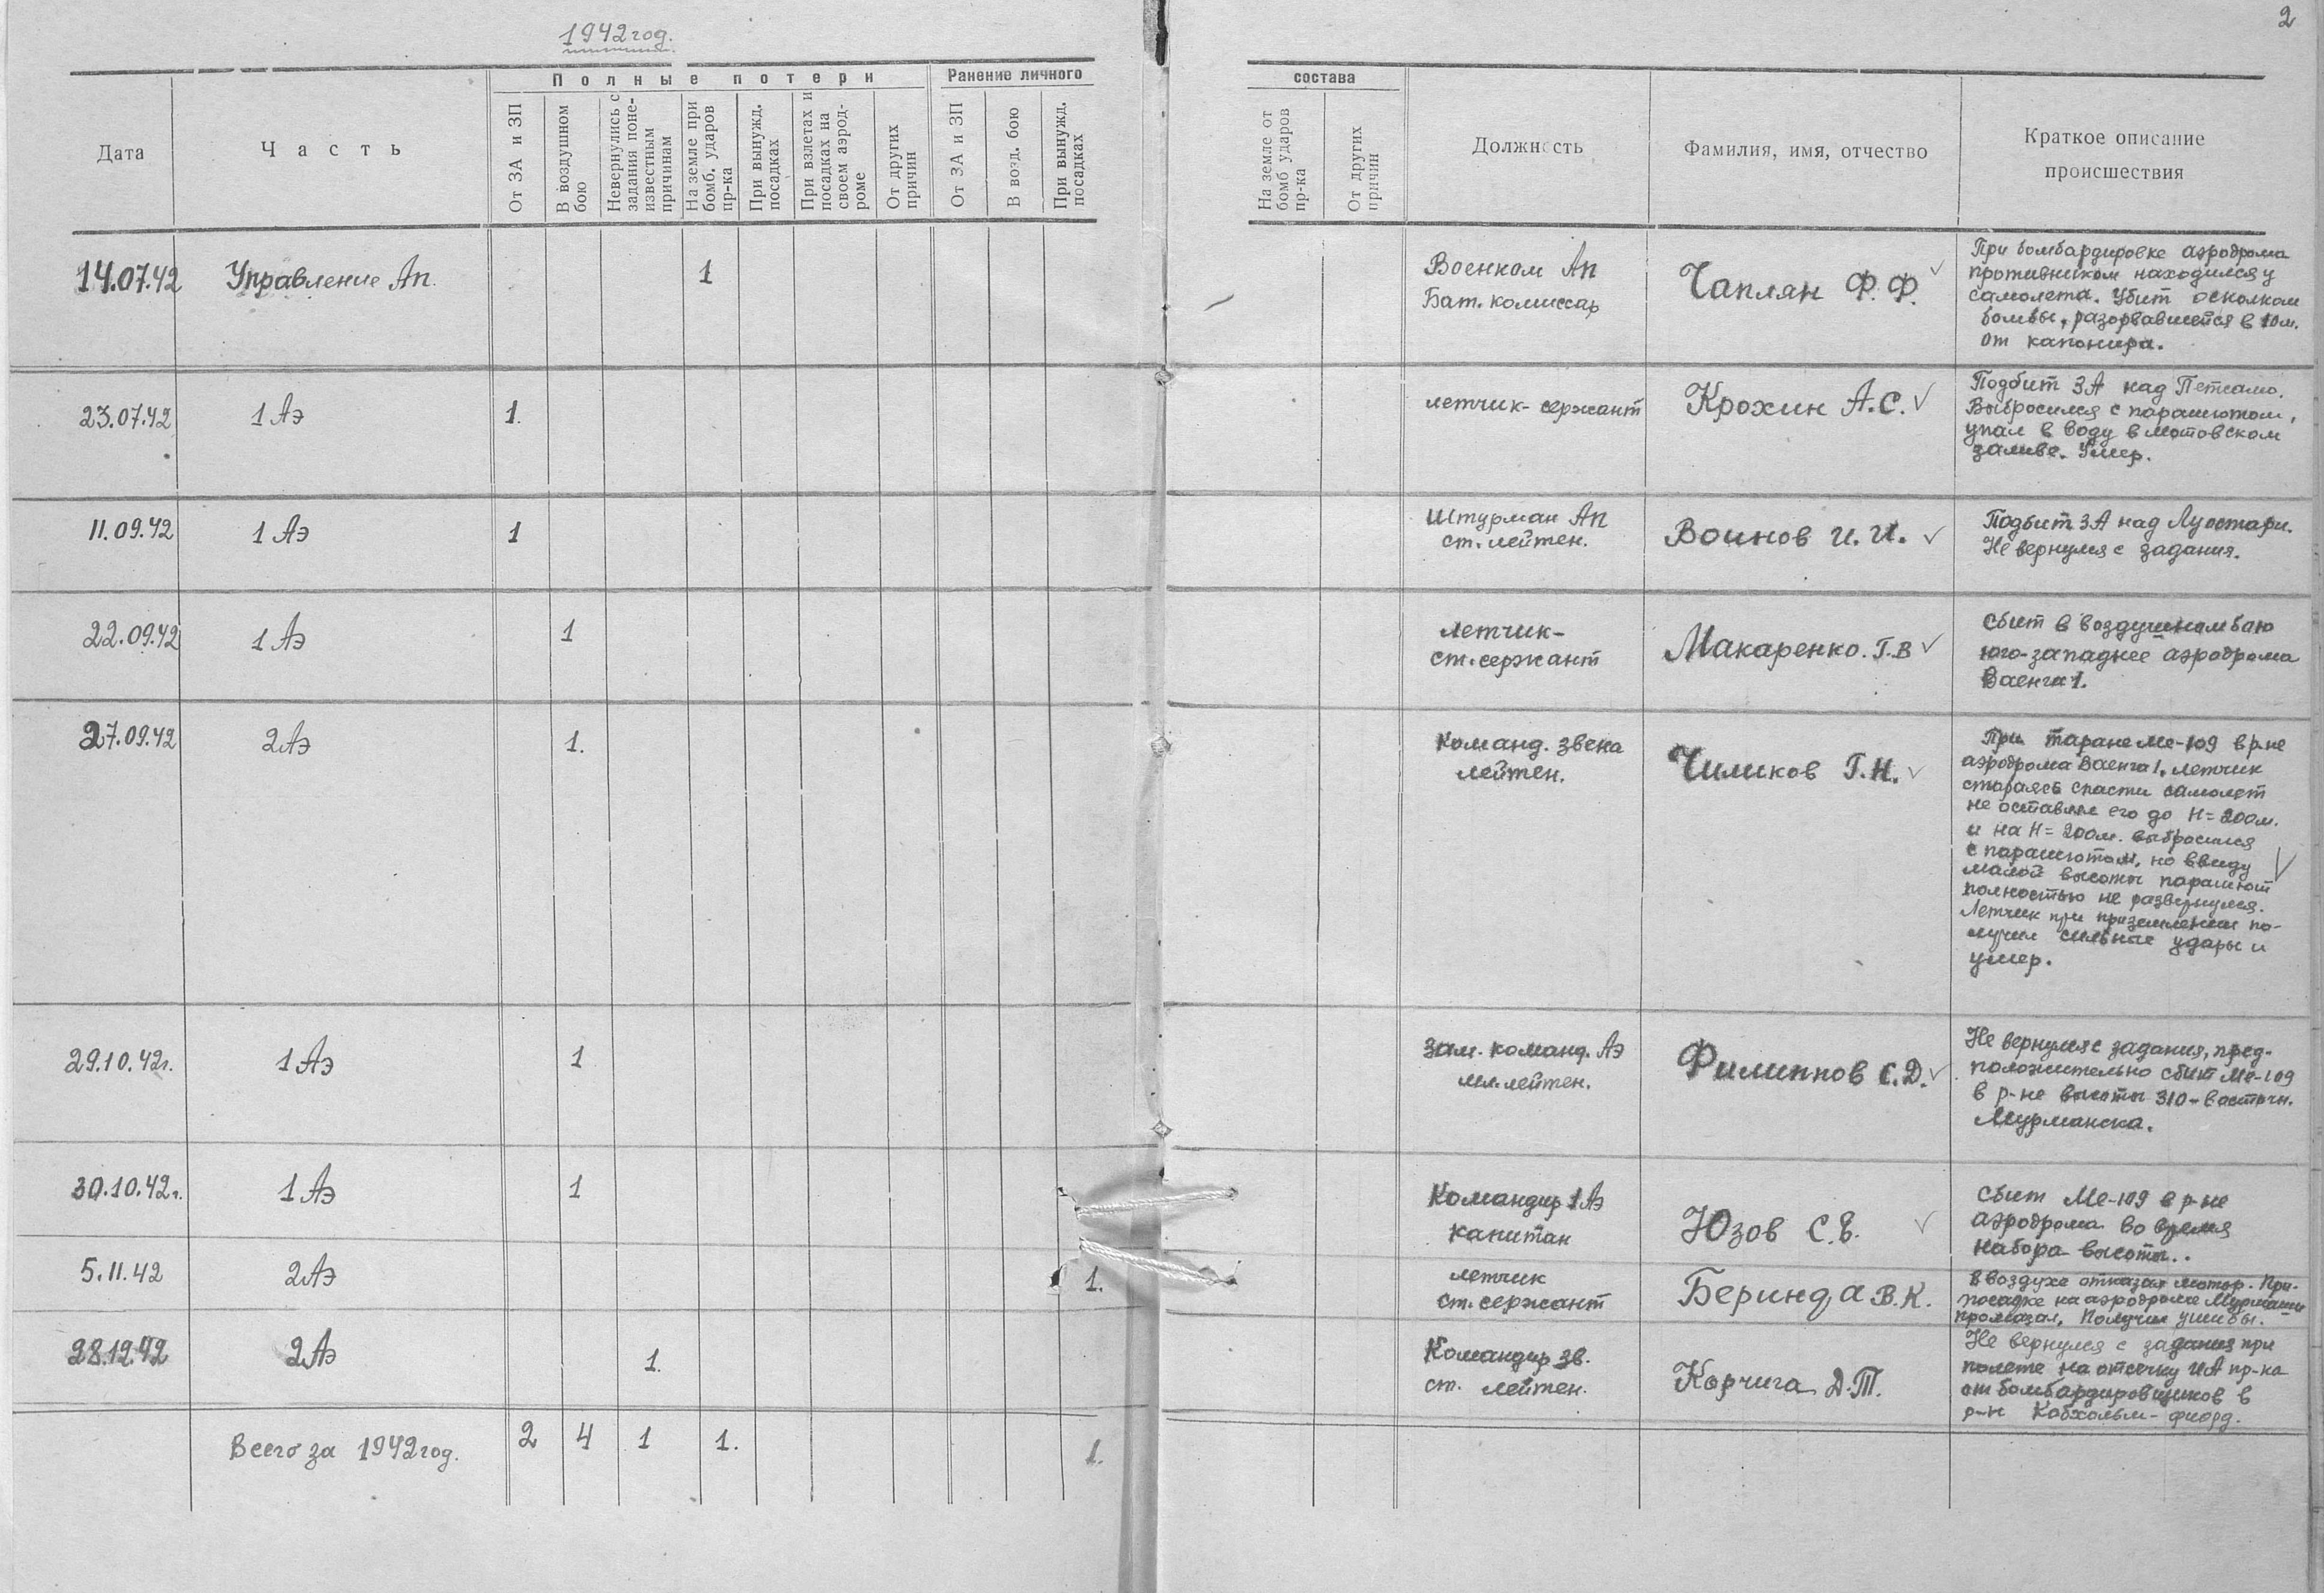 1942 год.
2
Дата
Часть
Полные потери
От ЗА и ЗП
В воздушном
бою
Невернулись с
задания поне-
известным
причинам
На земле при
бомб. ударов
пр-ка
При вынужд.
посадках
При взлетах и
посадках на
своем аэрод-
роме
От других
причин
Ранение личного
От ЗА и ЗП
В возд. бою
При вынужд.
посадках
состава
На земле от
бомб ударов
пр-ка
От других
причин
Должность
Фамилия, имя, отчество
Краткое описание
происшествия
14.07.42
Управление Ап.
1
Военком Ап
Бат. комиссар
Чаплян Ф.Ф.
При бомбардировке аэродрома
противником находился у
самолета. Убит осколком
бомбы, разорвавшейся в 10м.
от капонира.
23.07.42
1 Аэ
1.
летчик- сержант
Крохин А.С.
Подбит ЗА над Петсамо.
Выбросился с парашютом,
упал в воду в мотовском
заливе. Умер.
11.09.42
1 Аэ
1
Штурман Ап
ст. лейтен.
Воинов И.И.
Подбит ЗА над Луостари.
Не вернулся с задания.
22.09.42
1 Аэ
1
летчик-
ст. сержант
Макаренко. Г.В
Сбит в воздушном бою
юго-западнее аэродрома
Ваенга 1.
27.09.42
2Аэ
1.
Команд. звена
лейтен.
Чиликов Г.Н.
При таране Ме-109 в р-не
аэродрома Ваенга 1. летчик
стараясь спасти самолет
не оставлял его до Н=200м.
и на Н=200м. выбросился
с парашютом, но ввиду
малой высоты парашют
полностью не развернулся.
Летчик при приземлении по-
лучил сильные удары и
умер.
29.10.42г.
1 Аэ
1
Зам. команд. Аэ
мл.лейтен.
Филиппов С.Д.
Не вернулся с задания, пред-
положительно сбит Ме-109
в р-не высоты 310-восточн.
Мурманска.
30.10.42г.
1 Аэ
1
Командир 1 Аэ
капитан
Юзов С.Е.
Сбит Ме-109 в р-не
аэродрома во время
набора высоты.
5.11.42
2Аэ
1.
летчик
ст. сержант
Беринда В.К.
В воздухе отказал мотор. При-
посадке на аэродроме Мурмаши
промазал, Получил ушибы.
28.12.42
2Аэ
1.
Командир зв.
ст. лейтен.
Корчига Д.Т.
Не вернулся с задания при
полете на отсечку ИА пр-ка
от бомбардировщиков в
р-н Кобхольм-фиорд.
Всего за 1942 год.
2
4
1
1.
1.